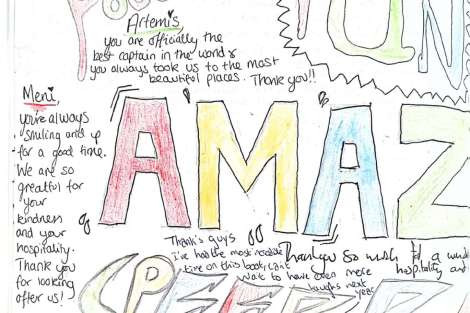 Artemis,
you are officially the
best captain in the world &
you always took us to the most
beautiful places. Thank you!!
FUN
Meni,
you're always
smiling and up
for a good time.
We are so
greatful for
your
kindness
and your
hospitality.
Thank you
for looking
after us!
AMAZ
Thank's guys
I've had the most
time on this
wait to have even more
laughs next
year
Thankyou so much
hospitality and